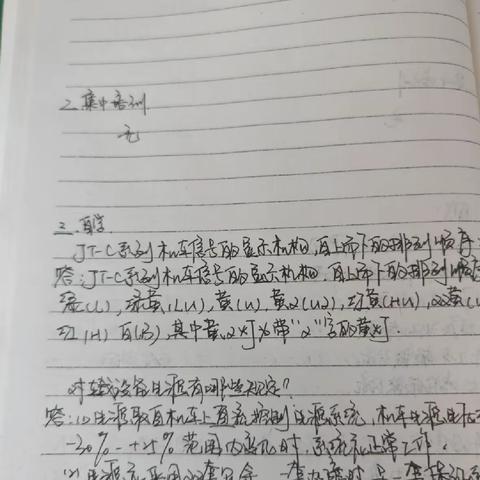 二、集中培训
无
三、自学
JT-C系列机车信号的显示机构,自上而下的排列顺序:
答:JT-C系列机车信号的显示机构,自上而下的排列顺序
绿(L),绿黄(LU),黄(U),黄2(U2),红黄(HU),双黄(U
红(H) 白(B),其中黄2灯为带"2"字的黄灯.
对车载设备电源有哪些规定?
答:(1)电源取自机车上直流控制电源系统,机车电源电压在
-30%~+25%范围内变化时,系统应正常工作.
电源应采用